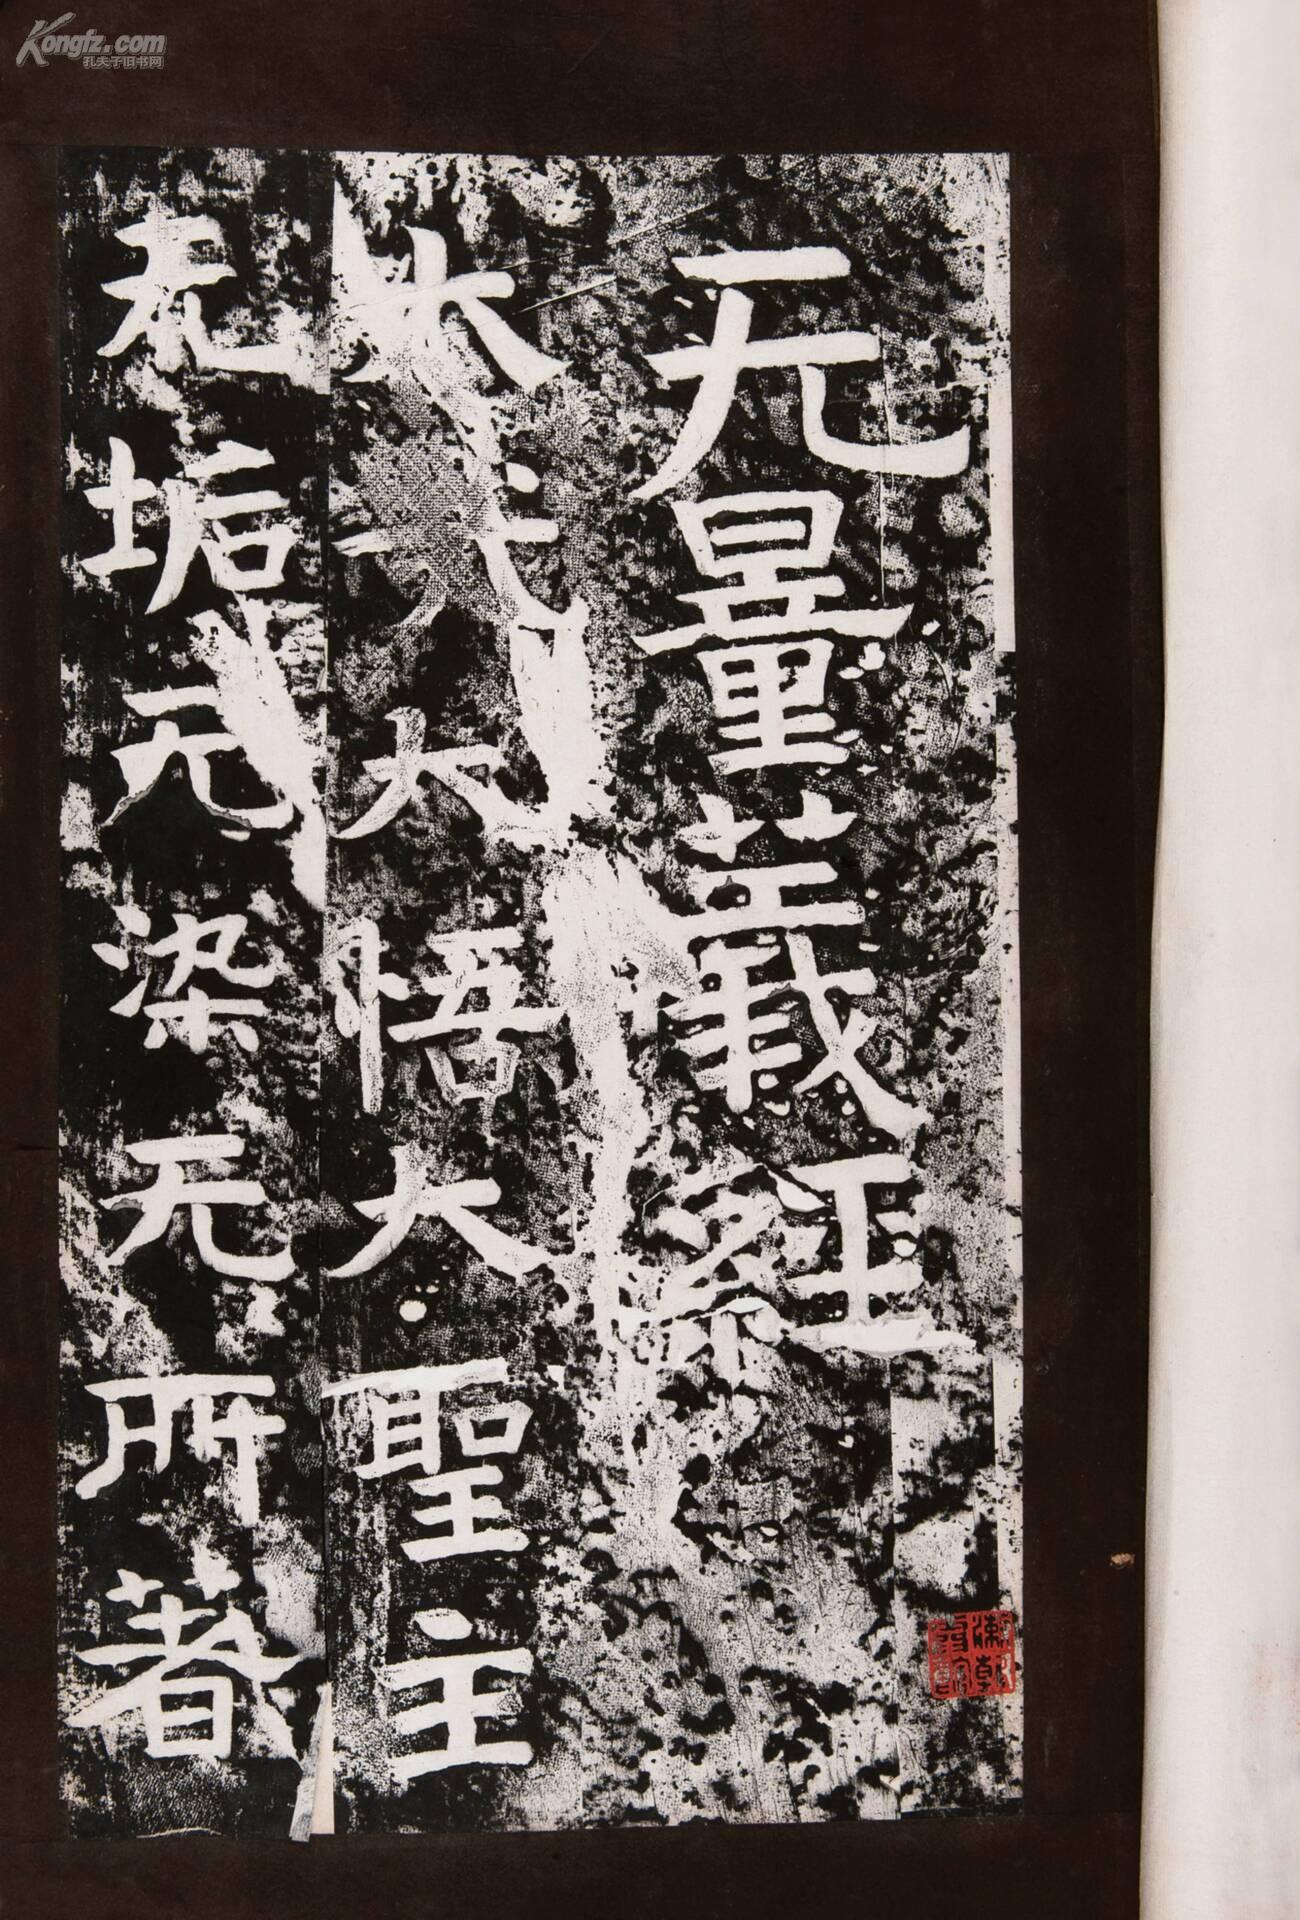 Kongfz.com
孔夫子旧书网
无量義經
大大悟大聖主
无垢无染无所著